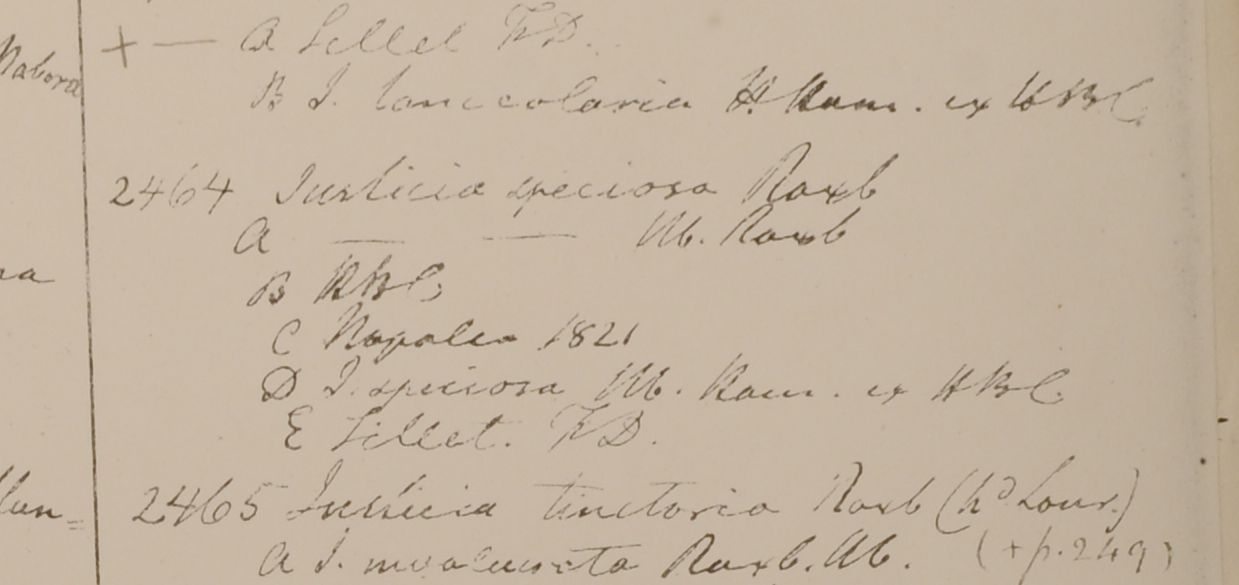 + — a Sillet FD.
Nabora
B J. lanceolaria H. Ham. ex HBC.
2464 Justicia speciosa Roxb
a — — Hb. Roxb
B HBC
na
C Napalea 1821
D J. speciosa Hb. Ham. ex HBC
E Sillet. FD.
2465 Justicia tinctoria Roxb (hᵈ Lour.)
a J. Roxb. Hb. (+ p. 249)